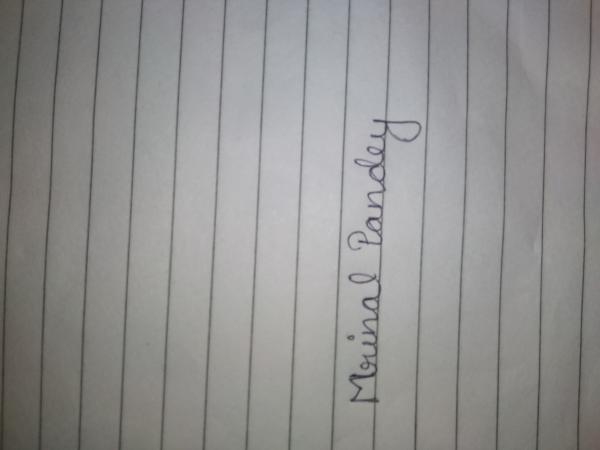 Mrinal Pandey